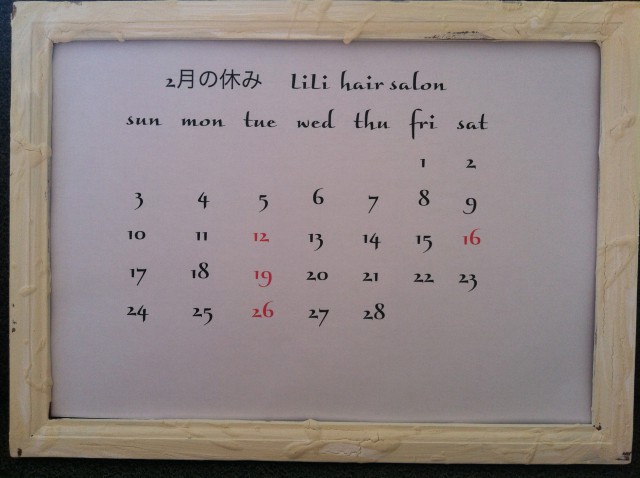 2月の休み LiLi hair salon
sun mon tue wed thu fri sat
1 2
3 4 5 6 7 8 9
10 11 12 13 14 15 16
17 18 19 20 21 22 23
24 25 26 27 28